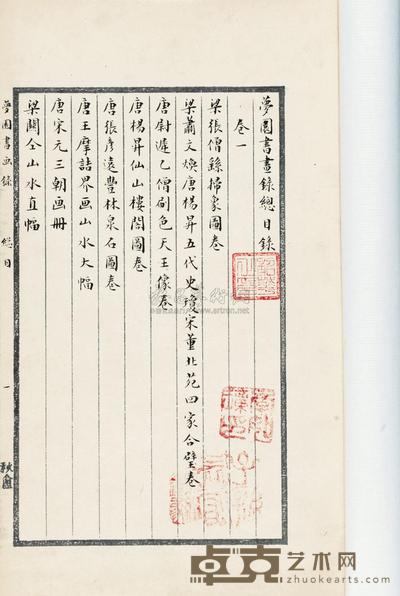 夢園書畫錄總目錄
卷一
梁張僧繇掃象圖卷
梁蕭文煥唐楊昇五代史瓊宋董北苑四家合璧卷
唐尉遲乙僧刷色天王像卷
唐楊昇仙山樓閣圖卷
唐張彥遠豐林泉石圖卷
唐王摩詰界画山水大幅
唐宋元三朝画冊
梁關仝山水直幅
夢園書画錄
總目
一
www.artron.net
卓克艺术网
zhuokearts.com